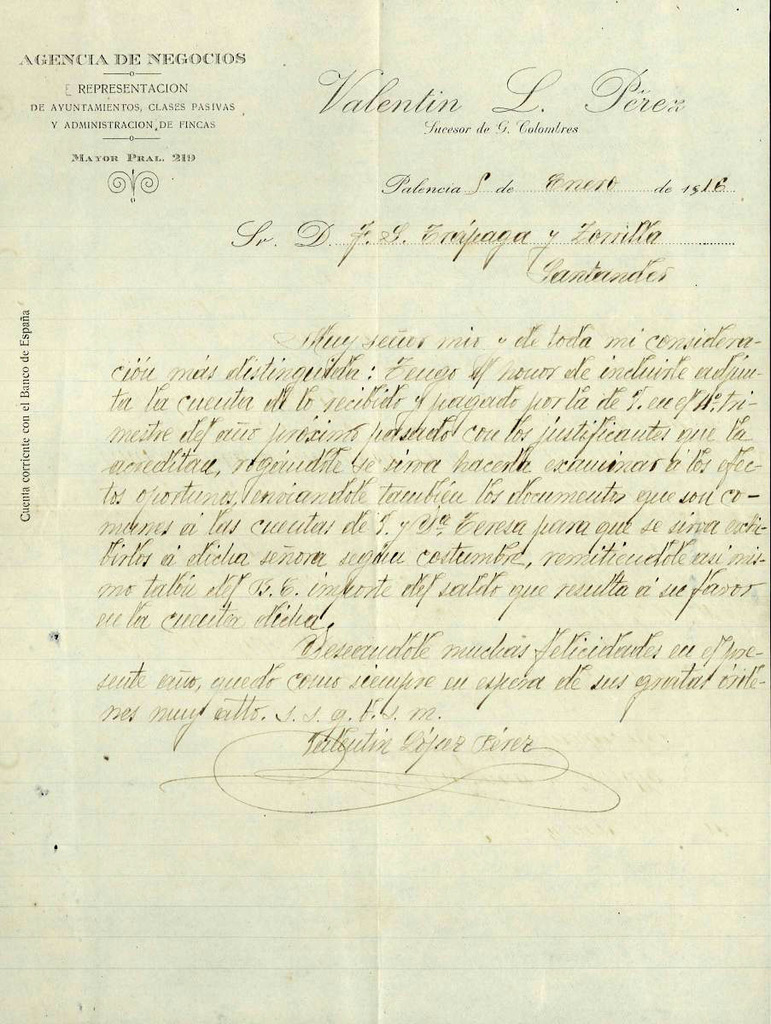 AGENCIA DE NEGOCIOS
REPRESENTACION
DE AYUNTAMIENTOS, CLASES PASIVAS
Y ADMINISTRACION DE FINCAS
MAYOR PRAL. 219
Valentin L. Pérez
Sucesor de G. Colombres
Palencia de Enero de 1916
Sr. D. F. G. Trápaga y Zorrilla
Santander
Cuenta corriente con el Banco de España
Muy señor mio y de toda mi considera-
ción más distinguida: Tengo el honor de incluirle adjun-
ta la cuenta de lo recibido y pagado por la de V. en el 4º. tri-
mestre del año próximo pasado con los justificantes que la
acreditan, rogándole se sirva hacerla examinar á los efec-
tos oportunos, enviandole también los documentos que son co-
munes á las cuentas de V. y Dª. Teresa para que se sirva exhi-
birlos á dicha señora según costumbre, remitiendole asi mis-
mo talón del B. E. importe del saldo que resulta á su favor
en la cuenta dicha.
Deseandole muchas felicidades en el pre-
sente año, quedo como siempre en espera de sus gratas órde-
nes muy atto. s. s. q. b. s. m.
Valentin López Pérez